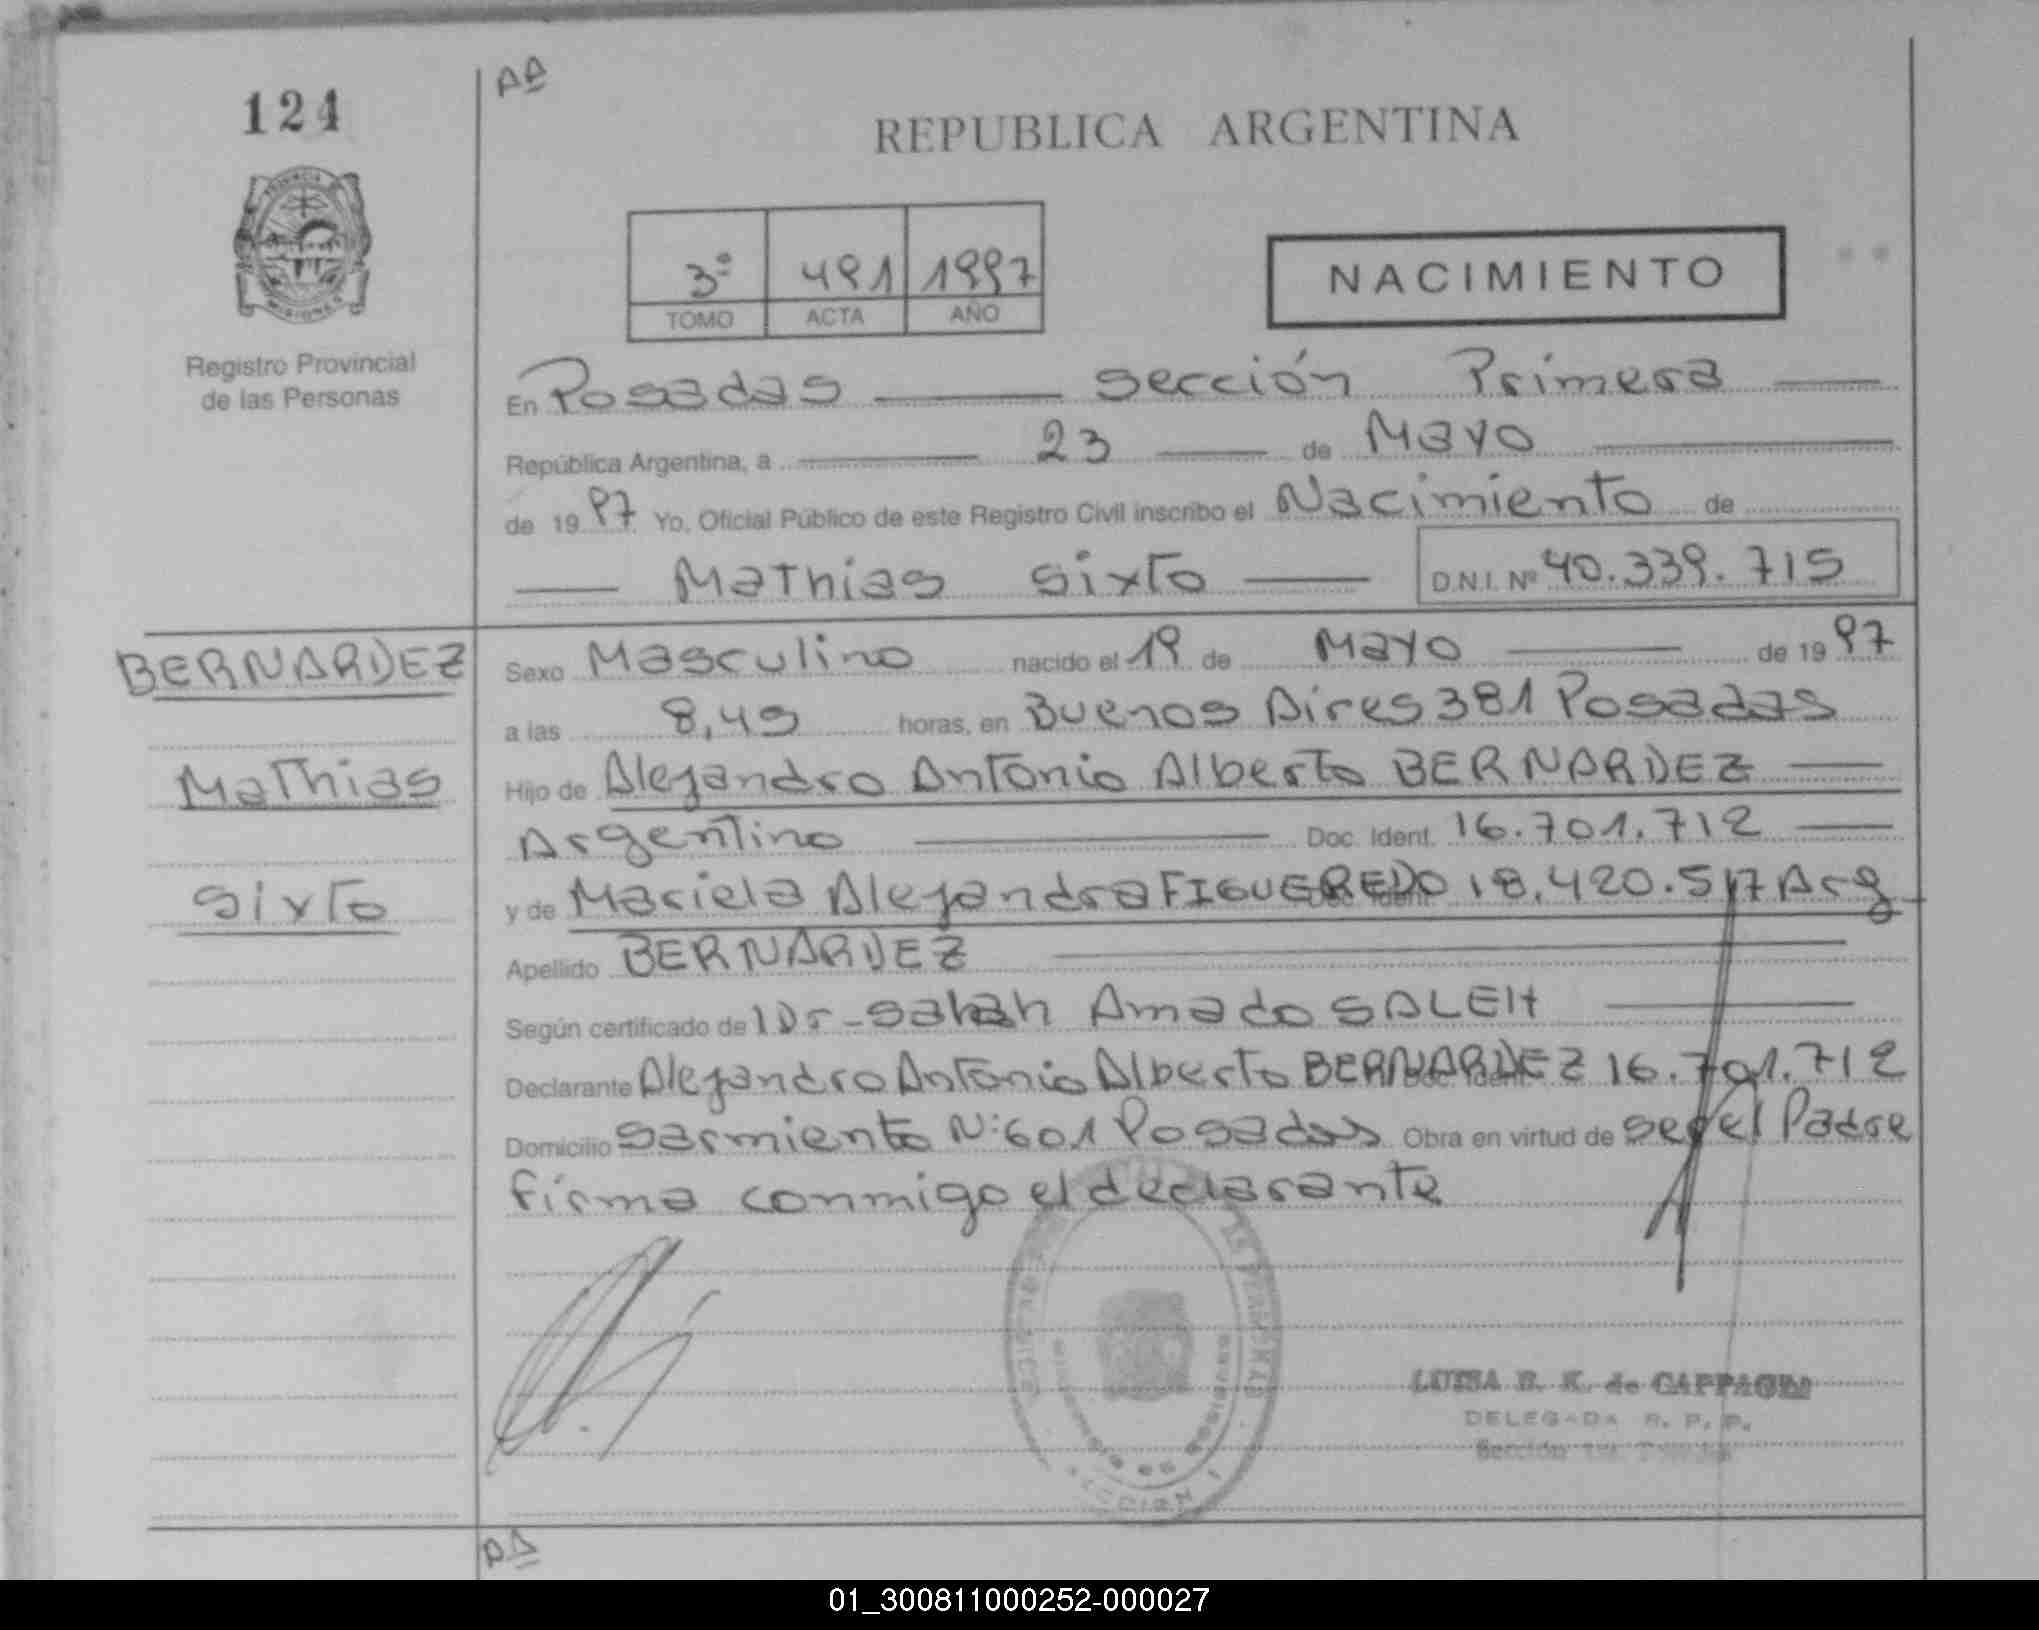 124
AA
REPUBLICA ARGENTINA
3º 491 1997
TOMO ACTA AÑO
NACIMIENTO
Registro Provincial
de las Personas
En Posadas sección Primera
República Argentina, a 23 de Mayo
de 1997 Yo, Oficial Público de este Registro Civil inscribo el Nacimiento de
Mathias Sixto D.N.I. Nº 40.339.715
BERNARDEZ
Mathias
Sixto
Sexo Masculino nacido el 19 de Mayo de 1997
a las 8,45 horas, en Buenos Aires 381 Posadas
Hijo de Alejandro Antonio Alberto BERNARDEZ
Argentino Doc. Ident. 16.701.712
y de Mariela Alejandra FIGUEREDO 18.420.517 Arg
Apellido BERNARDEZ
Según certificado de Dr - Amado SALEH
Declarante Alejandro Antonio Alberto BERNARDEZ 16.701.712
Domicilio Sarmiento Nº 601 Posadas Obra en virtud de ser el Padre
firma conmigo el declarante
LUISA de
DELEGADA R. P. P.
Sección
AA
01_300811000252-000027